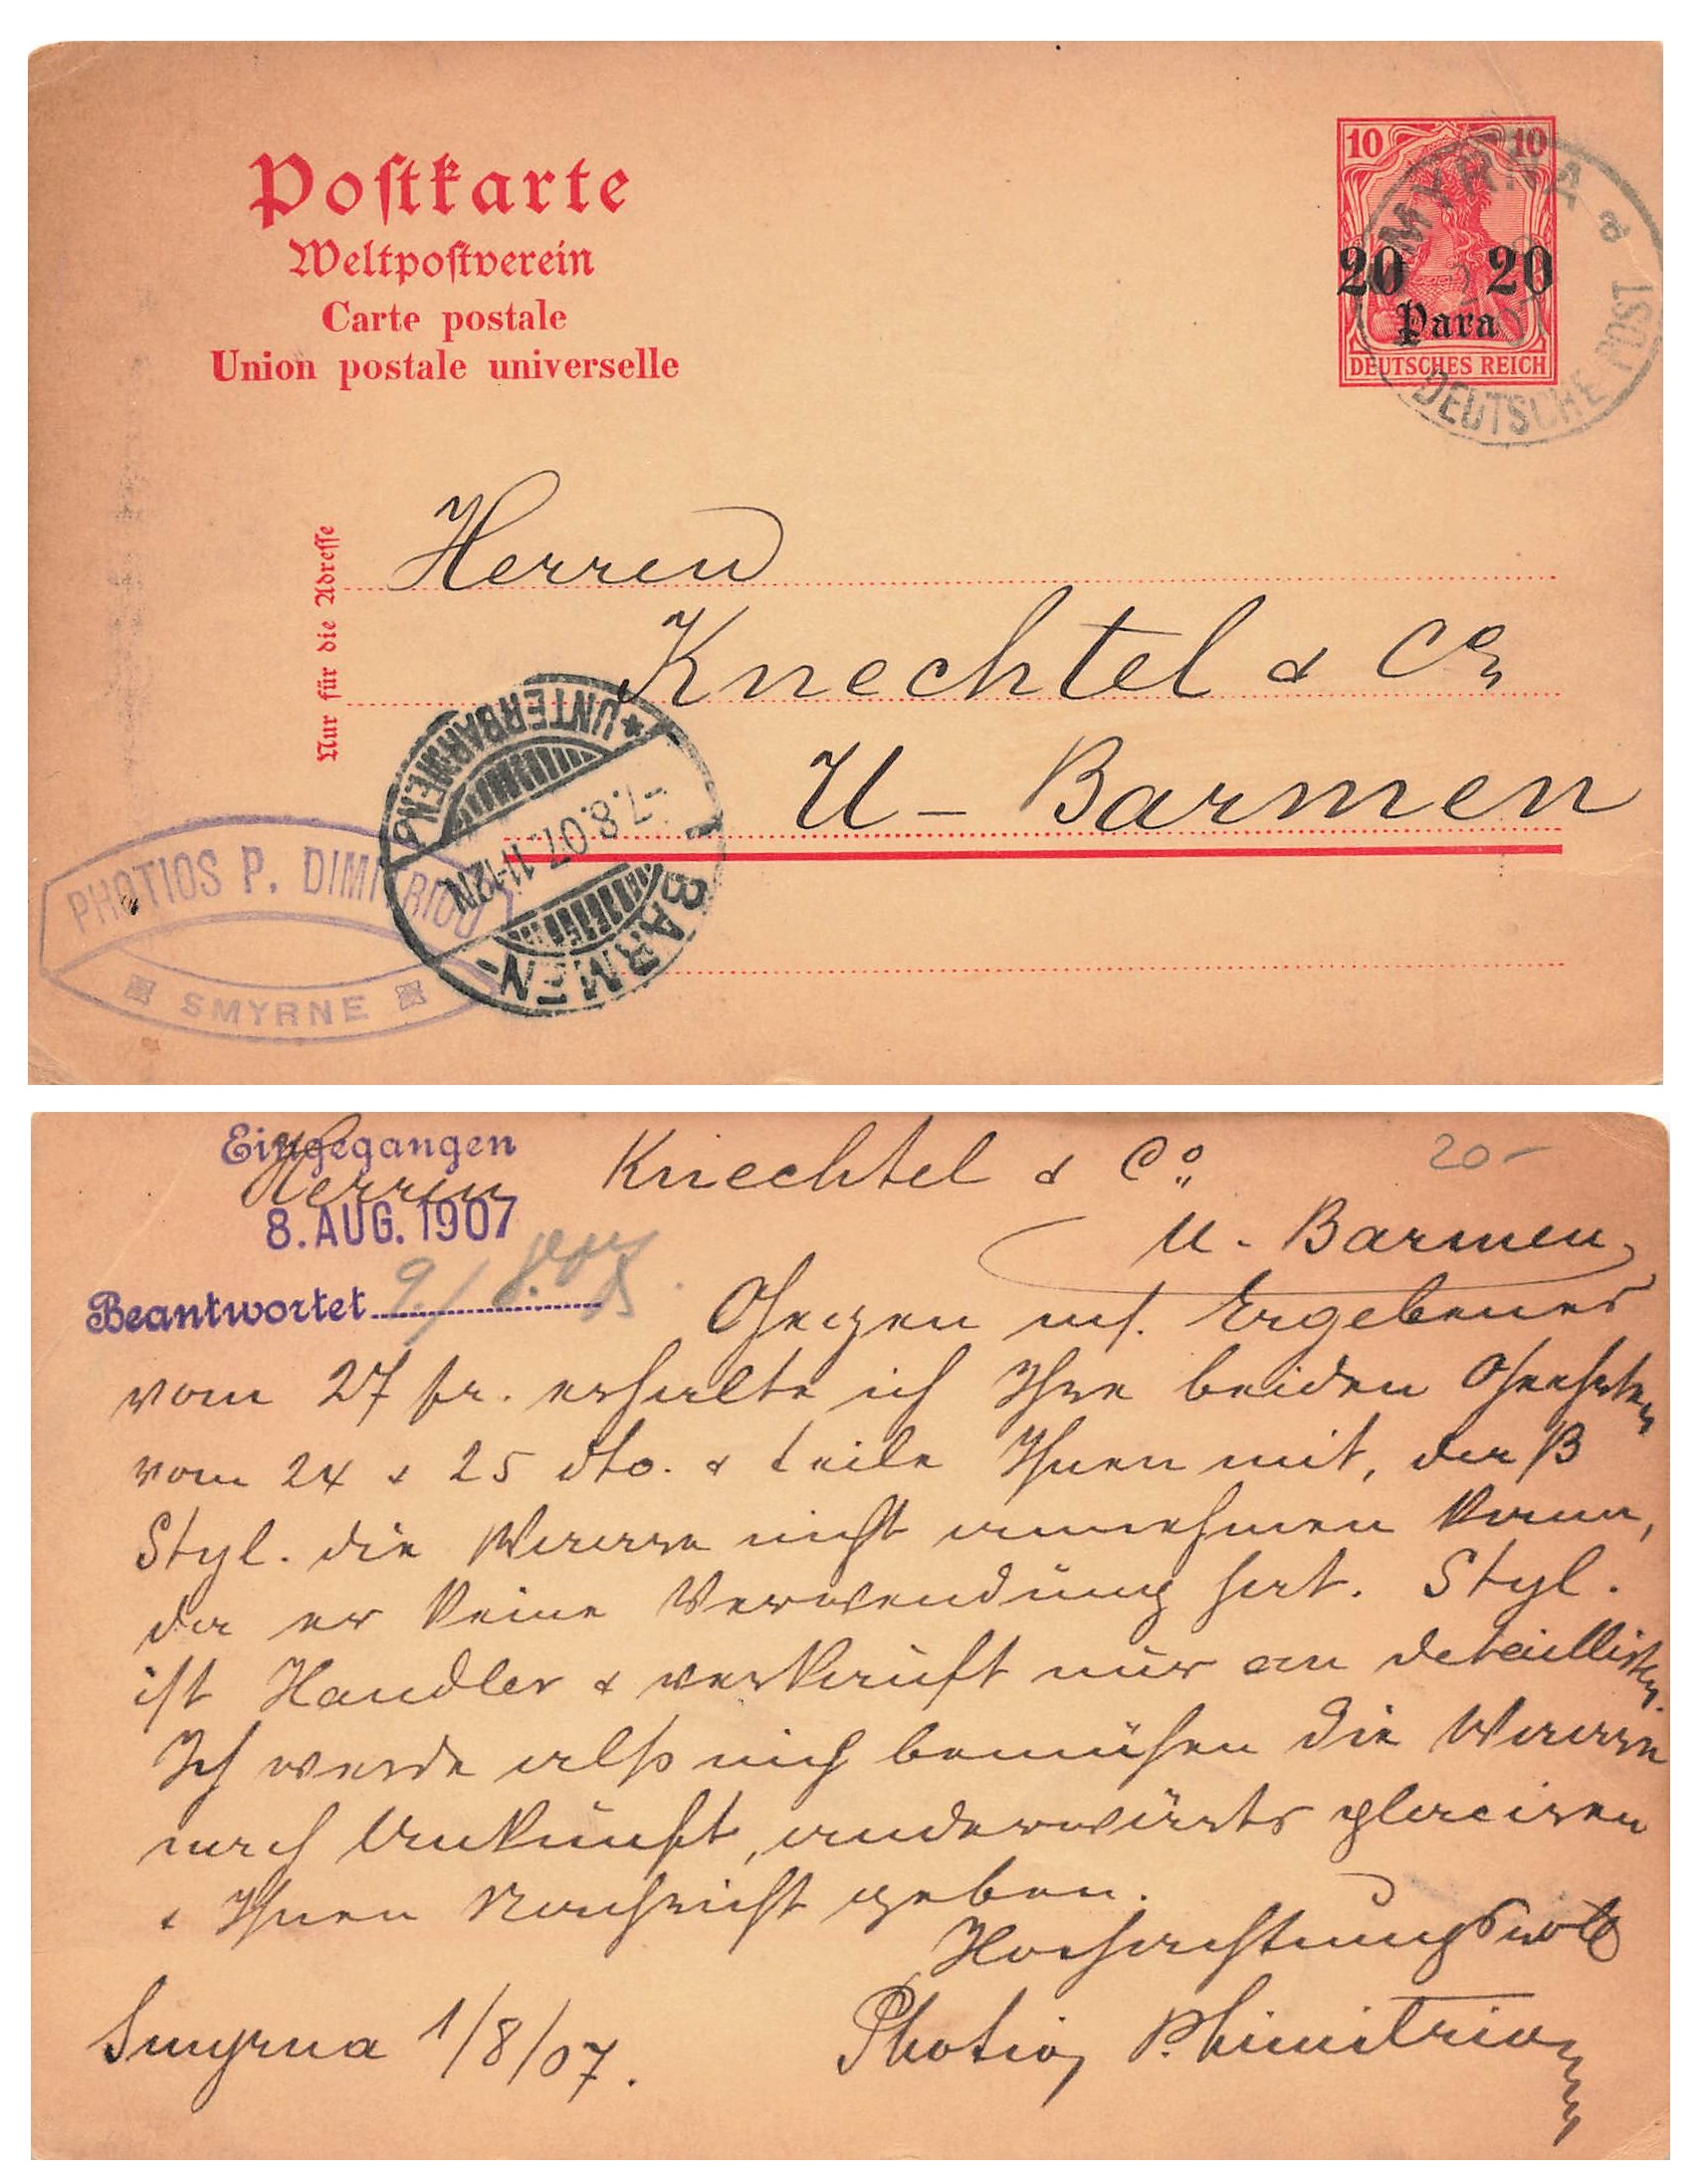 Postkarte
Weltpostverein
Carte postale
Union postale universelle
10 10
20 20
Para
DEUTSCHES REICH
SMYRNA a
DEUTSCHE POST
Nur für die Adresse
Herren
Knechtel & Co
U - Barmen
BARMEN-
-7.8.07.11-12N
*UNTERBARMEN
PHOTIOS P. DIMITRIOU
SMYRNE
Eingegangen
8. AUG. 1907
Beantwortet 9./8.
20-
Herren Knechtel & Co.
U. - Barmen,
Gegen m/. Ergebenes
vom 27 pr. erhalte ich Ihre beiden Geehrten
vom 24 & 25 dto. & teile Ihnen mit, daß
Styl. die Waare nicht annehmen kann,
da er keine Verwendung hat. Styl.
ist Handler & verkauft nur an detaillisten.
Ich werde also mich bemühen die Waare
nach Ankunft, anderwärts placiren
& Ihnen Nachricht geben.
Hochachtungsvoll
Smyrna 1/8/07.
Photios P. Dimitriou